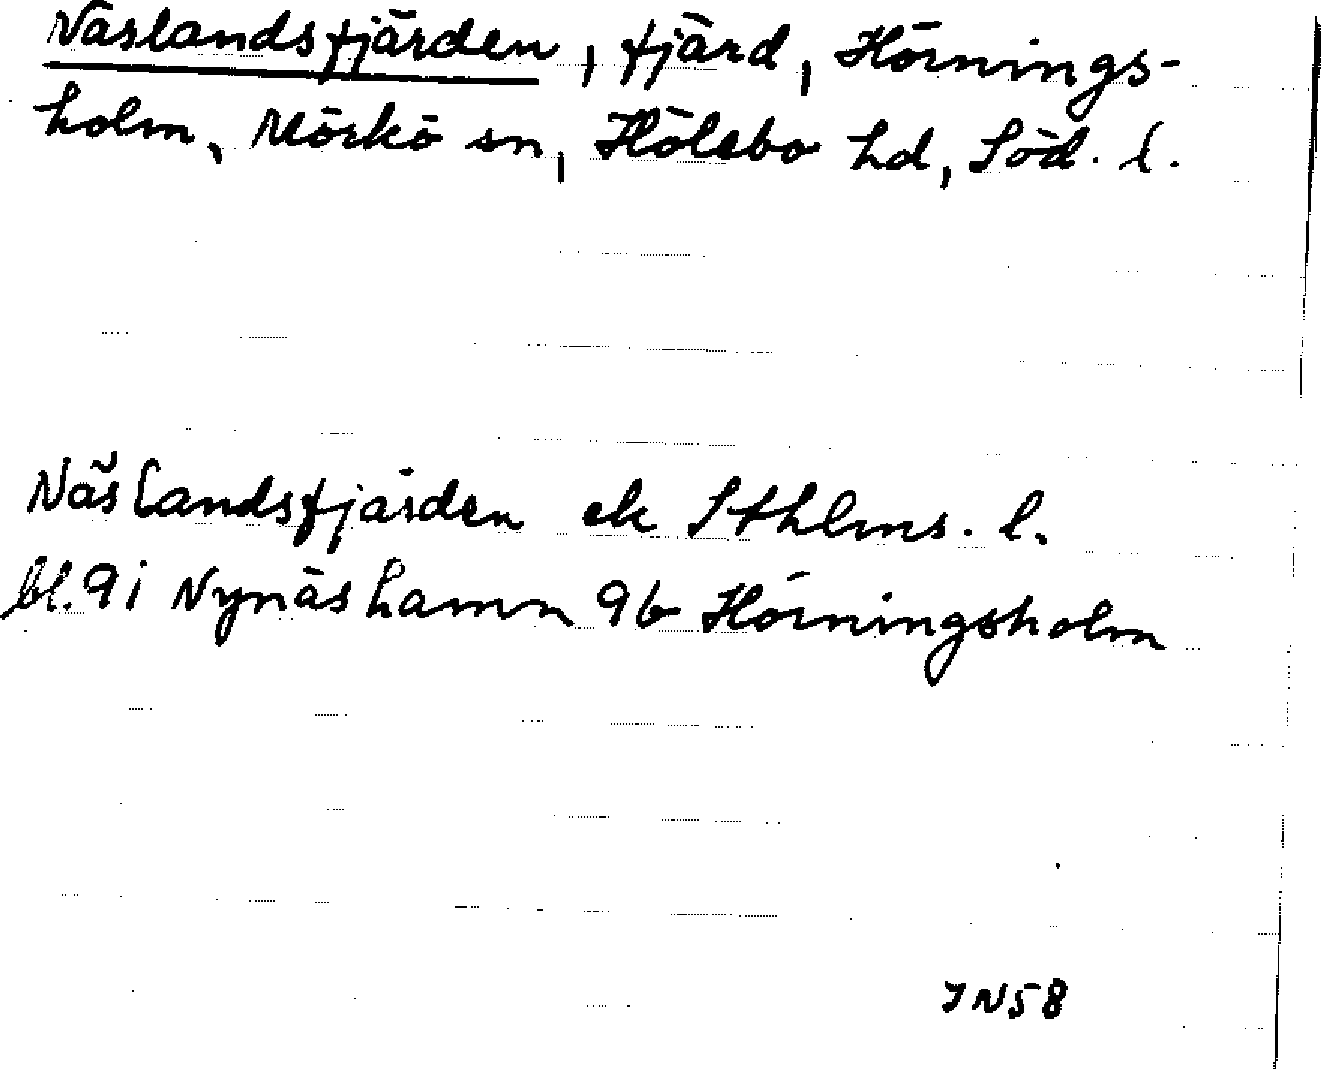 Näslandsfjärden, fjärd, Hörnings-
holm, Mörkö sn, Hölebo hd, Söd. l.
Näslandsfjärden ek Sthlms. l.
bl. 9i Nynäshamn 9b Hörningsholm
JN58